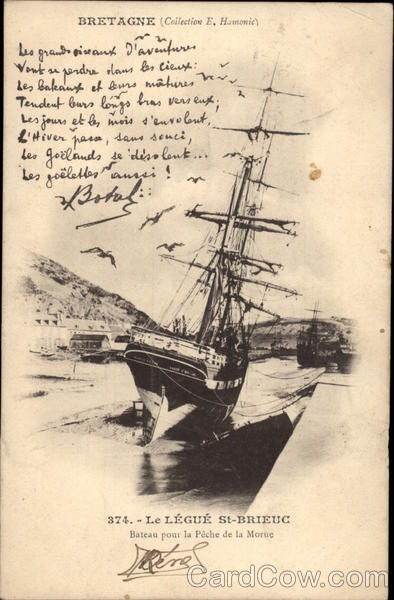 BRETAGNE (Collection E. Hamonic)
Les grands oiseaux d'aventures
Vont se perdre dans les cieux:
Les bateaux et leurs mâtures
Tendent leurs longs bras vers eux;
Les jours et les mois s'envolent,
L'Hiver passe, sans souci,
Les Goëlands se désolent...
Les goëlettes aussi!
Botrel
374. - LE LÉGUÉ St-BRIEUC
Bateau pour la Pêche de la Morue
CardCow.com